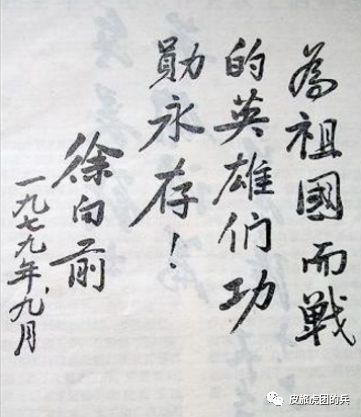 為祖國而戰
的英雄们功
勛永存！
徐向前
一九七九年、九月
皮旅虎团的兵